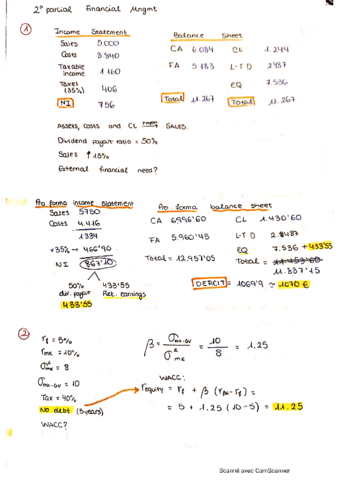 2º partial Financial Mngmt
1
Income Statement
Sales 5.000
Costs 3.840
Taxable income 1.160
Taxes (35%) 406
NI 756
Balance Sheet
CA 6.084 CL 1.244
FA 5.183 L-T D 2487
EQ 7.536
Total 11.267 Total 11.267
Assets, costs and CL SALES.
Dividend payout ratio = 50%
Sales ↑ 15%
External financial need?
Pro forma income statement
Sales 5750
Costs 4.416
1334
×35% → 466'90
NI 867'10
50% 433'55
div. payout Ret. earnings
433'55
Pro forma balance sheet
CA 6996'60 CL 1.430'60
FA 5.960'45 L-T D 2.8487
EQ 7.536 + 433'55
Total = 12.957'05 Total =
11.887'15
DEFICIT = 1069'9 ≃ 1070 €
2
rf = 5%
rmk = 10%
σ²mk = 8
σmk-GV = 10
Tax = 40%
No debt (5 years)
WACC?
β = σmk-GV / σ²mk = 10 / 8 = 1.25
WACC:
requity = rf + β (rmk - rf) =
= 5 + 1.25 (10-5) = 11.25
Scanné avec CamScanner